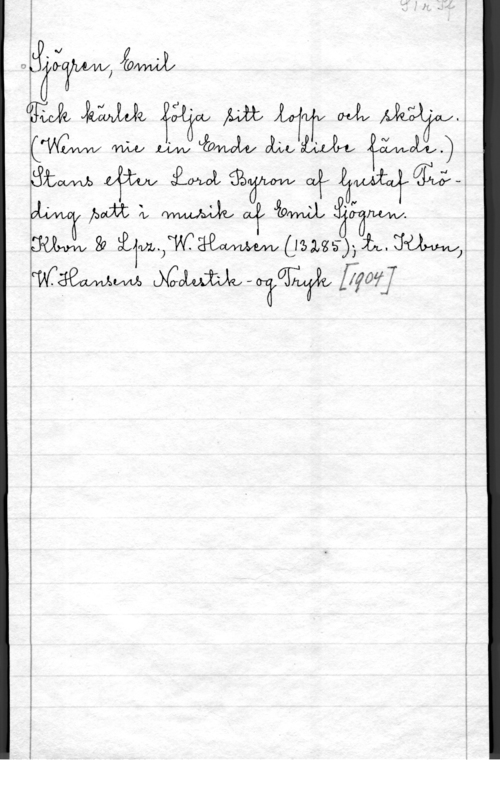 Sjögren, Emil
Fick kärlek följa sitt lopp och skölja.
(Wenn nie ein Ende die Liebe fände.)
Stans efter Lord Byron af Gustaf Frö-
ding satt i musik af Emil Sjögren.
Kbvn & Lpz., W. Hansen (13285); tr. Kbvn,
W. Hansens Nodestik- og Tryk [1904]